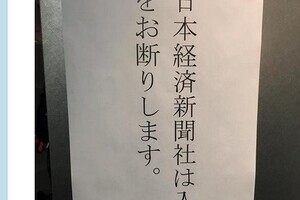 日本経済新聞社は入
をお断りします。